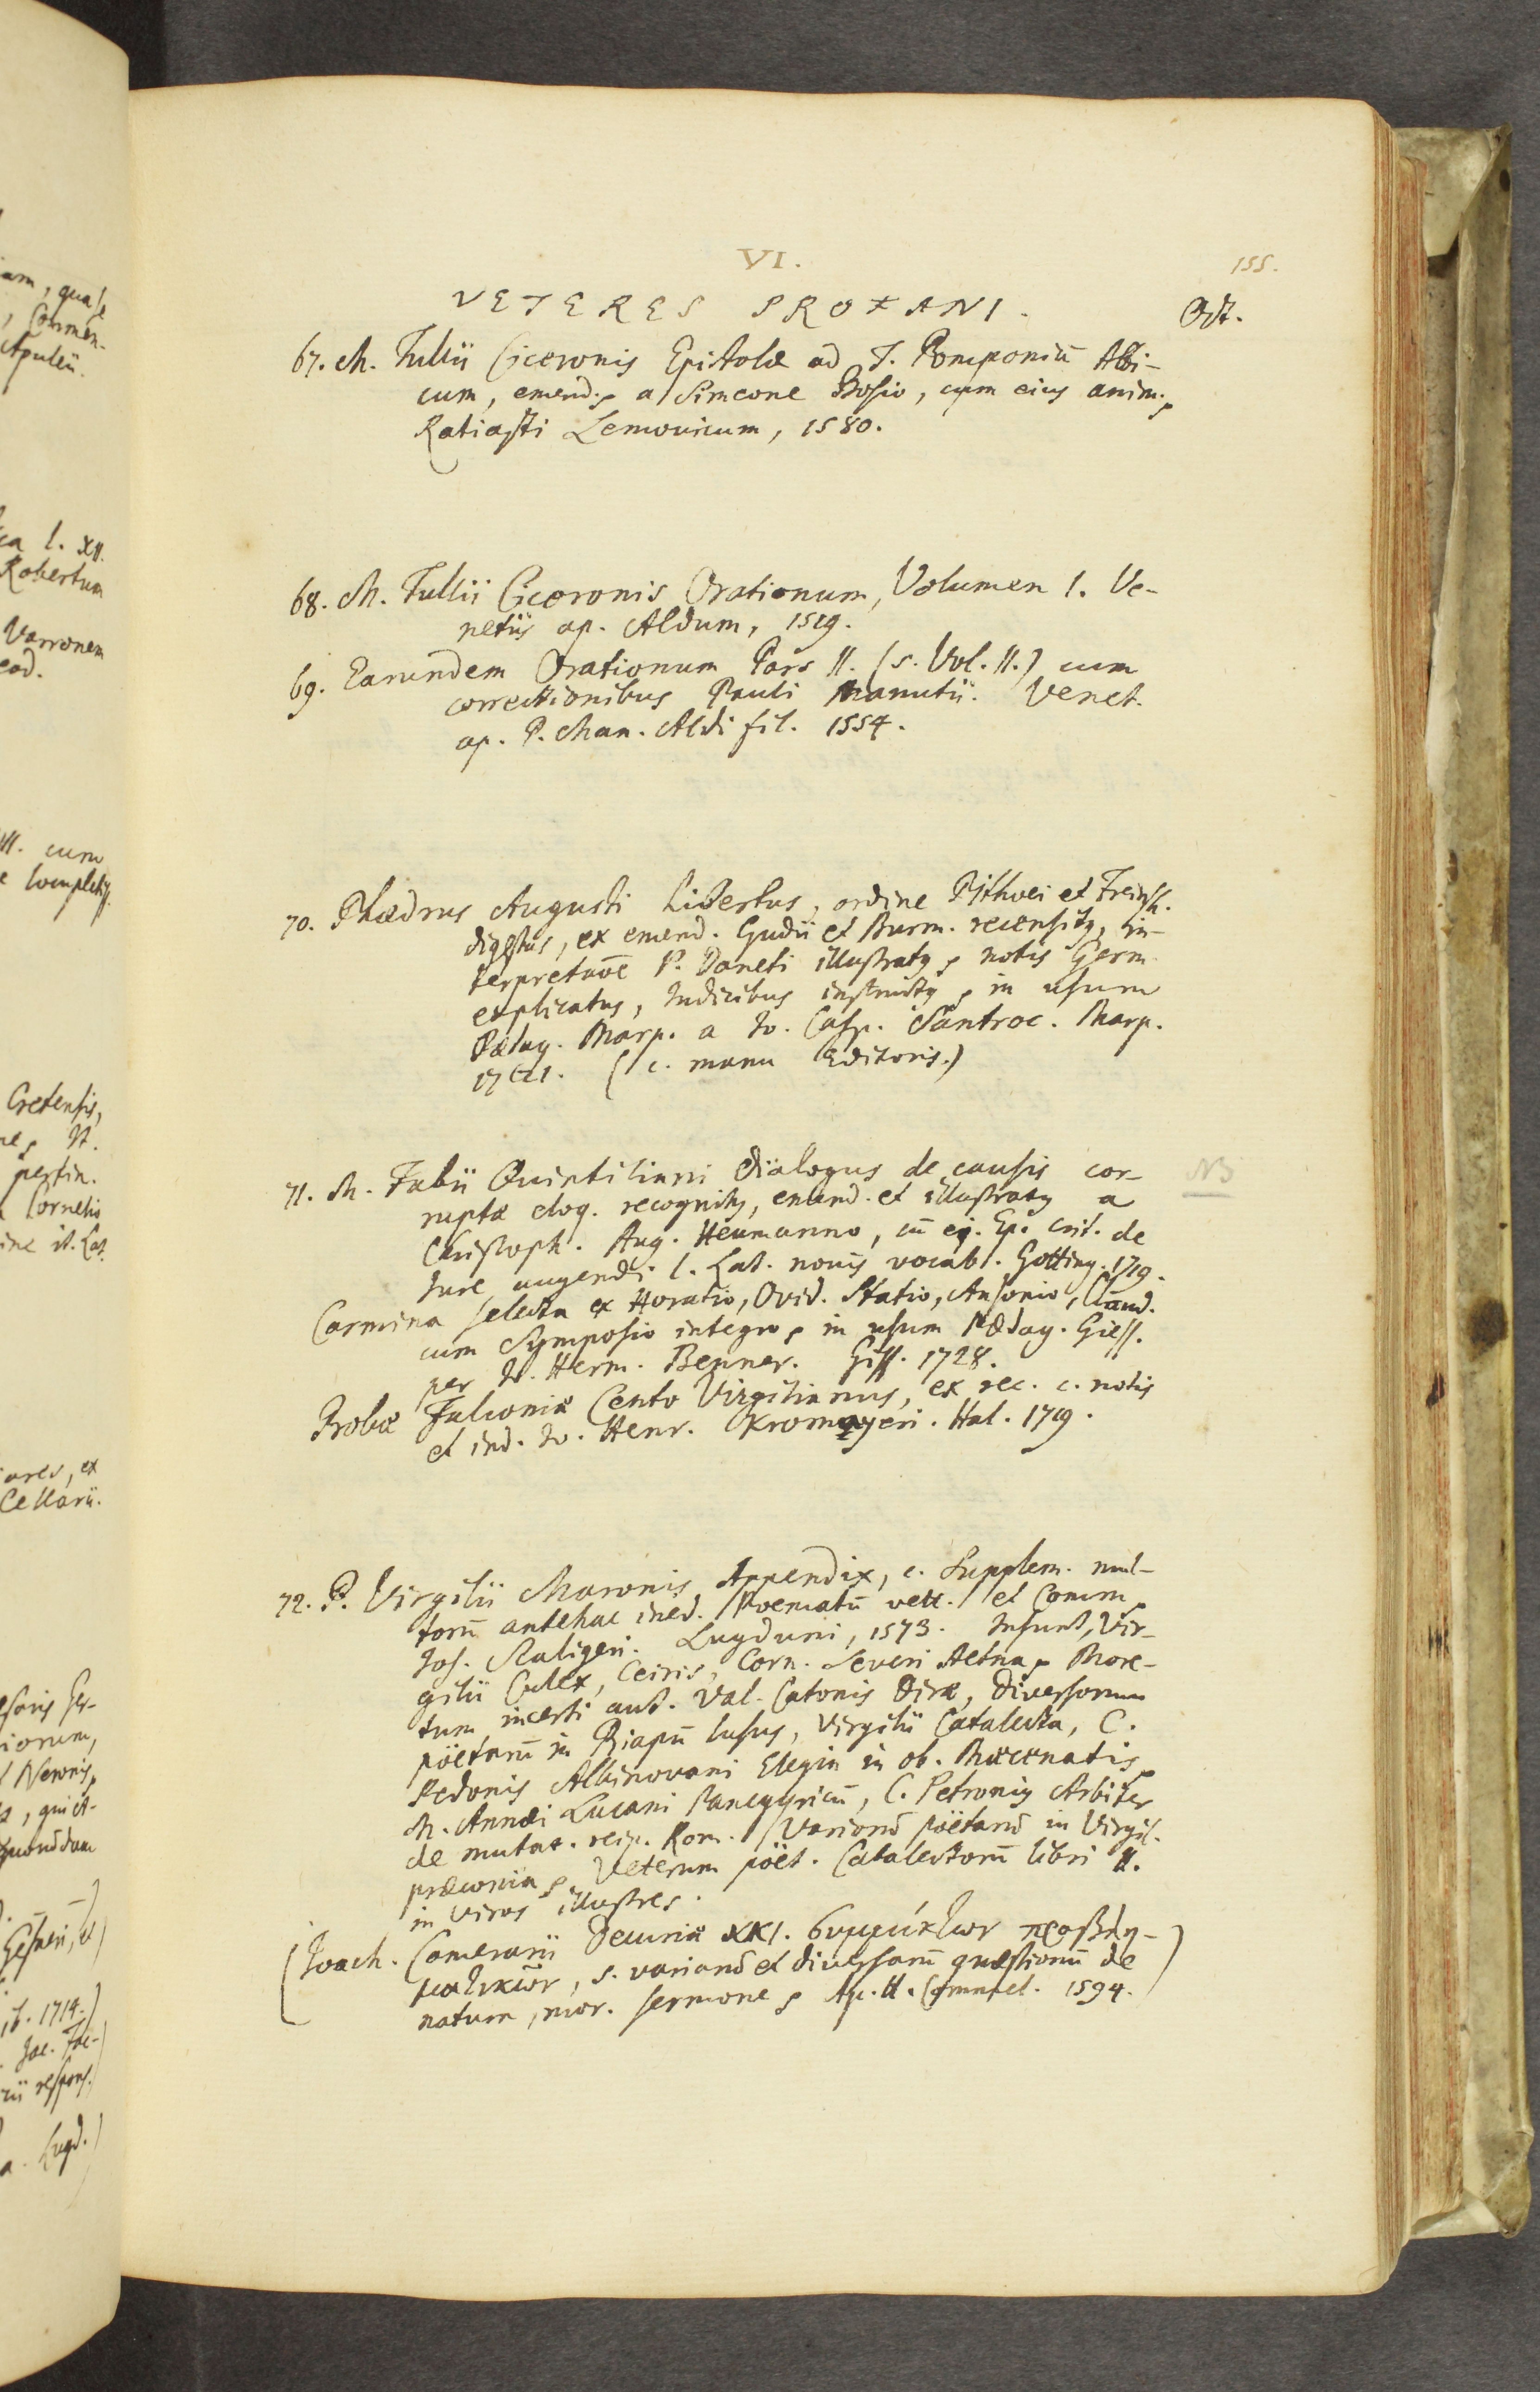 VI.
155.
VETERES PROFANI.
Oct.
67. M. Tullii Ciceronis Epistolæ ad T. Pomponiū Atti-
cum, emend. a Simeone Bosio, cum eius anim.
Ratiasti Lemouicum, 1580.
68. M. Tullii Ciceronis Orationum, Volumen I. Ve-
netiis ap. Aldum, 1519.
69. Earundem Orationum Pars II. (s. Vol. II.) cum
correctionibus Pauli Manutii. Venet.
ap. P. Man. Aldi fil. 1554.
70. Phædrus Augusti Libertus, ordine Pithoei et Freinsh.
digestus, ex emend. Gudii et Burm. recensitus, in-
terpretatōe P. Daneti illustratus, notis Germ.
explicatus, Indicibus instructus, in usum
Pædag. Marp. a Jo. Casp. Santroc. Marp.
(c. manu Editoris.)
71. M. Fabii Quintiliani Dialogus de causis cor-
ruptæ eloq. recognitus, emend. et illustratus a
Christoph. Aug. Heumanno, cū ej. Ep. crit. de
Jure augendi l. Lat. nouis vocab. Gotting. 1719.
NB
Carmina selecta ex Horatio, Ovid. Statio, Ausonio, Claud.
cum Symposio integro, in usum Pædag. Giess.
per Jo. Herm. Benner. Giss. 1728.
Probæ Falconiæ Cento Virgilianus, ex rec. c. notis
et ind. Jo. Henr. Kromayeri. Hal. 1719.
72. P. Virgilii Maronis Appendix, c. Supplem. mul-
torū antehac ined. Poematū vett. et Comm.
Jos. Scaligeri. Lugduni, 1573. Insunt, Vir-
gilii Culex, Ceiris, Corn. Severi Aetna, More-
tum incerti aut. Val. Catonis Diræ, Diversorum
pöetarū in Priapū lusus, Virgilii Catalecta, C.
Pedonis Albinovani Elegia in ob. Mæcenatis,
M. Annæi Lucani Panegyricū, C. Petronius Arbiter
de mutat. reip. Rom. Variorū pöetarū in Virgil.
præconia, Veterum pöet. Catalectorū libri II.
in viros illustres.
(Joach. Camerarii Decuriæ XXI. συμμίκτων προβλη-
μάτων, s. variarū et diversarū quæstionū de
natura, mor. sermone, Ap. H. Commel. 1594.)